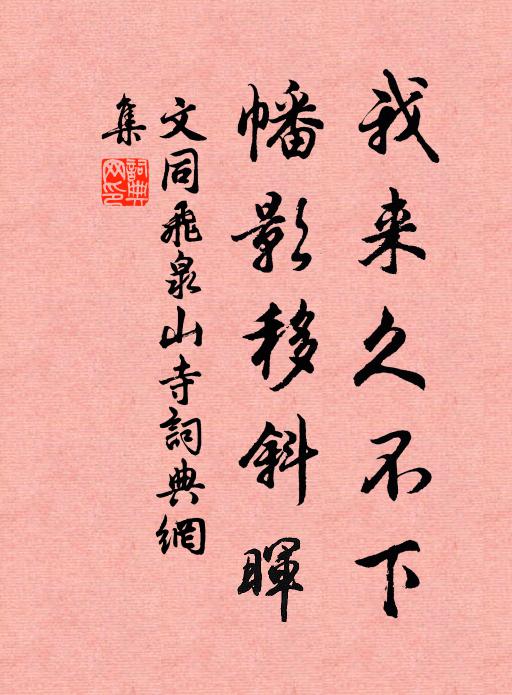 我来久不下
幡影移斜暉
文同飛泉山寺詞典網
集
詞典網印